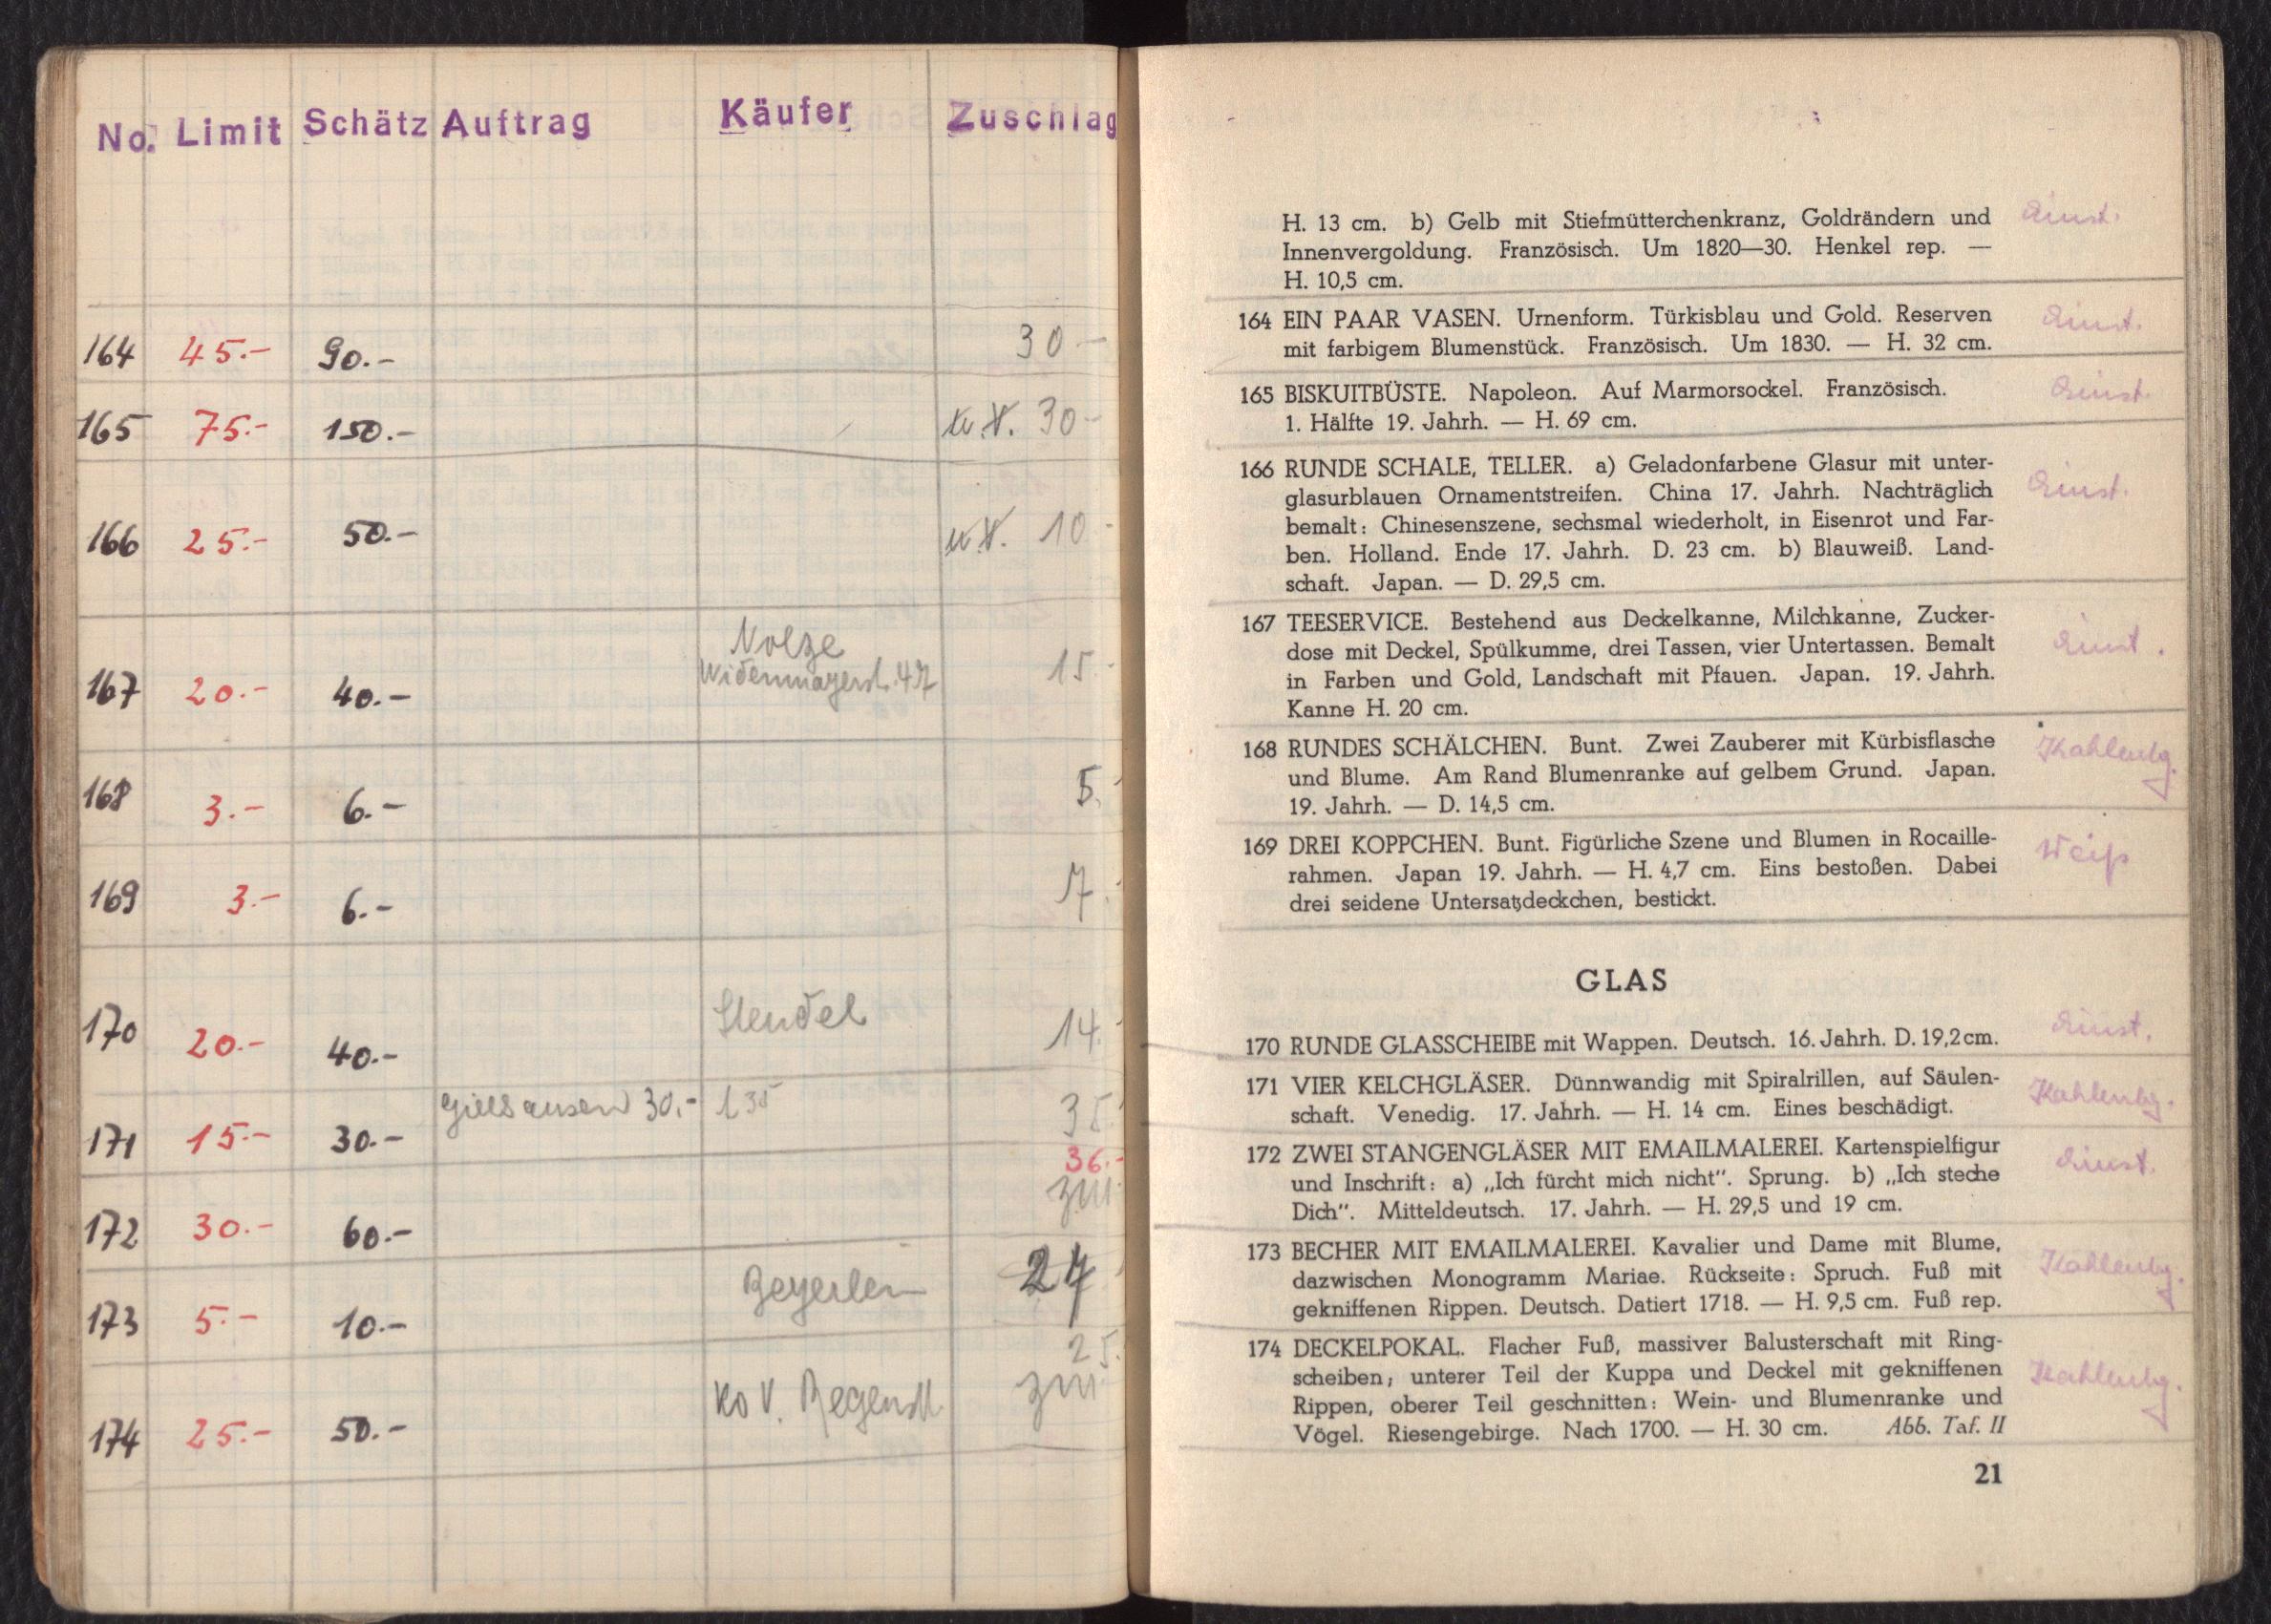 No. Limit Schätz Auftrag Käufer Zuschlag
164 45.- 90.- 30.-
165 75.- 150.- 30.-
166 25.- 50.- 10.-
Nolze
167 20.- 40.- Widenmayerst. 47 15.-
168 3.- 6.- 5.-
169 3.- 6.- 7.-
170 20.- 40.- 14.-
30.- 135 35.-
171 15.- 30.-
36.-
172 30.- 60.-
173 5.- 10.- 24
25.
174 25.- 50.-
H. 13 cm. b) Gelb mit Stiefmütterchenkranz, Goldrändern und
Innenvergoldung. Französisch. Um 1820—30. Henkel rep. —
H. 10,5 cm.
164 EIN PAAR VASEN. Urnenform. Türkisblau und Gold. Reserven
mit farbigem Blumenstück. Französisch. Um 1830. — H. 32 cm.
165 BISKUITBÜSTE. Napoleon. Auf Marmorsockel. Französisch.
1. Hälfte 19. Jahrh. — H. 69 cm.
166 RUNDE SCHALE, TELLER. a) Geladonfarbene Glasur mit unter-
glasurblauen Ornamentstreifen. China 17. Jahrh. Nachträglich
bemalt: Chinesenszene, sechsmal wiederholt, in Eisenrot und Far-
ben. Holland. Ende 17. Jahrh. D. 23 cm. b) Blauweiß. Land-
schaft. Japan. — D. 29,5 cm.
167 TEESERVICE. Bestehend aus Deckelkanne, Milchkanne, Zucker-
dose mit Deckel, Spülkumme, drei Tassen, vier Untertassen. Bemalt
in Farben und Gold, Landschaft mit Pfauen. Japan. 19. Jahrh.
Kanne H. 20 cm.
168 RUNDES SCHÄLCHEN. Bunt. Zwei Zauberer mit Kürbisflasche Kahlenbg.
und Blume. Am Rand Blumenranke auf gelbem Grund. Japan.
19. Jahrh. — D. 14,5 cm.
169 DREI KOPPCHEN. Bunt. Figürliche Szene und Blumen in Rocaille- Weiß
rahmen. Japan 19. Jahrh. — H. 4,7 cm. Eins bestoßen. Dabei
drei seidene Untersatzdeckchen, bestickt.
GLAS
170 RUNDE GLASSCHEIBE mit Wappen. Deutsch. 16. Jahrh. D. 19,2 cm.
171 VIER KELCHGLÄSER. Dünnwandig mit Spiralrillen, auf Säulen- Kahlenbg.
schaft. Venedig. 17. Jahrh. — H. 14 cm. Eines beschädigt.
172 ZWEI STANGENGLÄSER MIT EMAILMALEREI. Kartenspielfigur
und Inschrift: a) „Ich fürcht mich nicht". Sprung. b) „Ich steche
Dich". Mitteldeutsch. 17. Jahrh. — H. 29,5 und 19 cm.
173 BECHER MIT EMAILMALEREI. Kavalier und Dame mit Blume, Kahlenbg.
dazwischen Monogramm Mariae. Rückseite: Spruch. Fuß mit
gekniffenen Rippen. Deutsch. Datiert 1718. — H. 9,5 cm. Fuß rep.
174 DECKELPOKAL. Flacher Fuß, massiver Balusterschaft mit Ring-
scheiben; unterer Teil der Kuppa und Deckel mit gekniffenen Kahlenbg.
Rippen, oberer Teil geschnitten: Wein- und Blumenranke und
Vögel. Riesengebirge. Nach 1700. — H. 30 cm. Abb. Taf. II
21